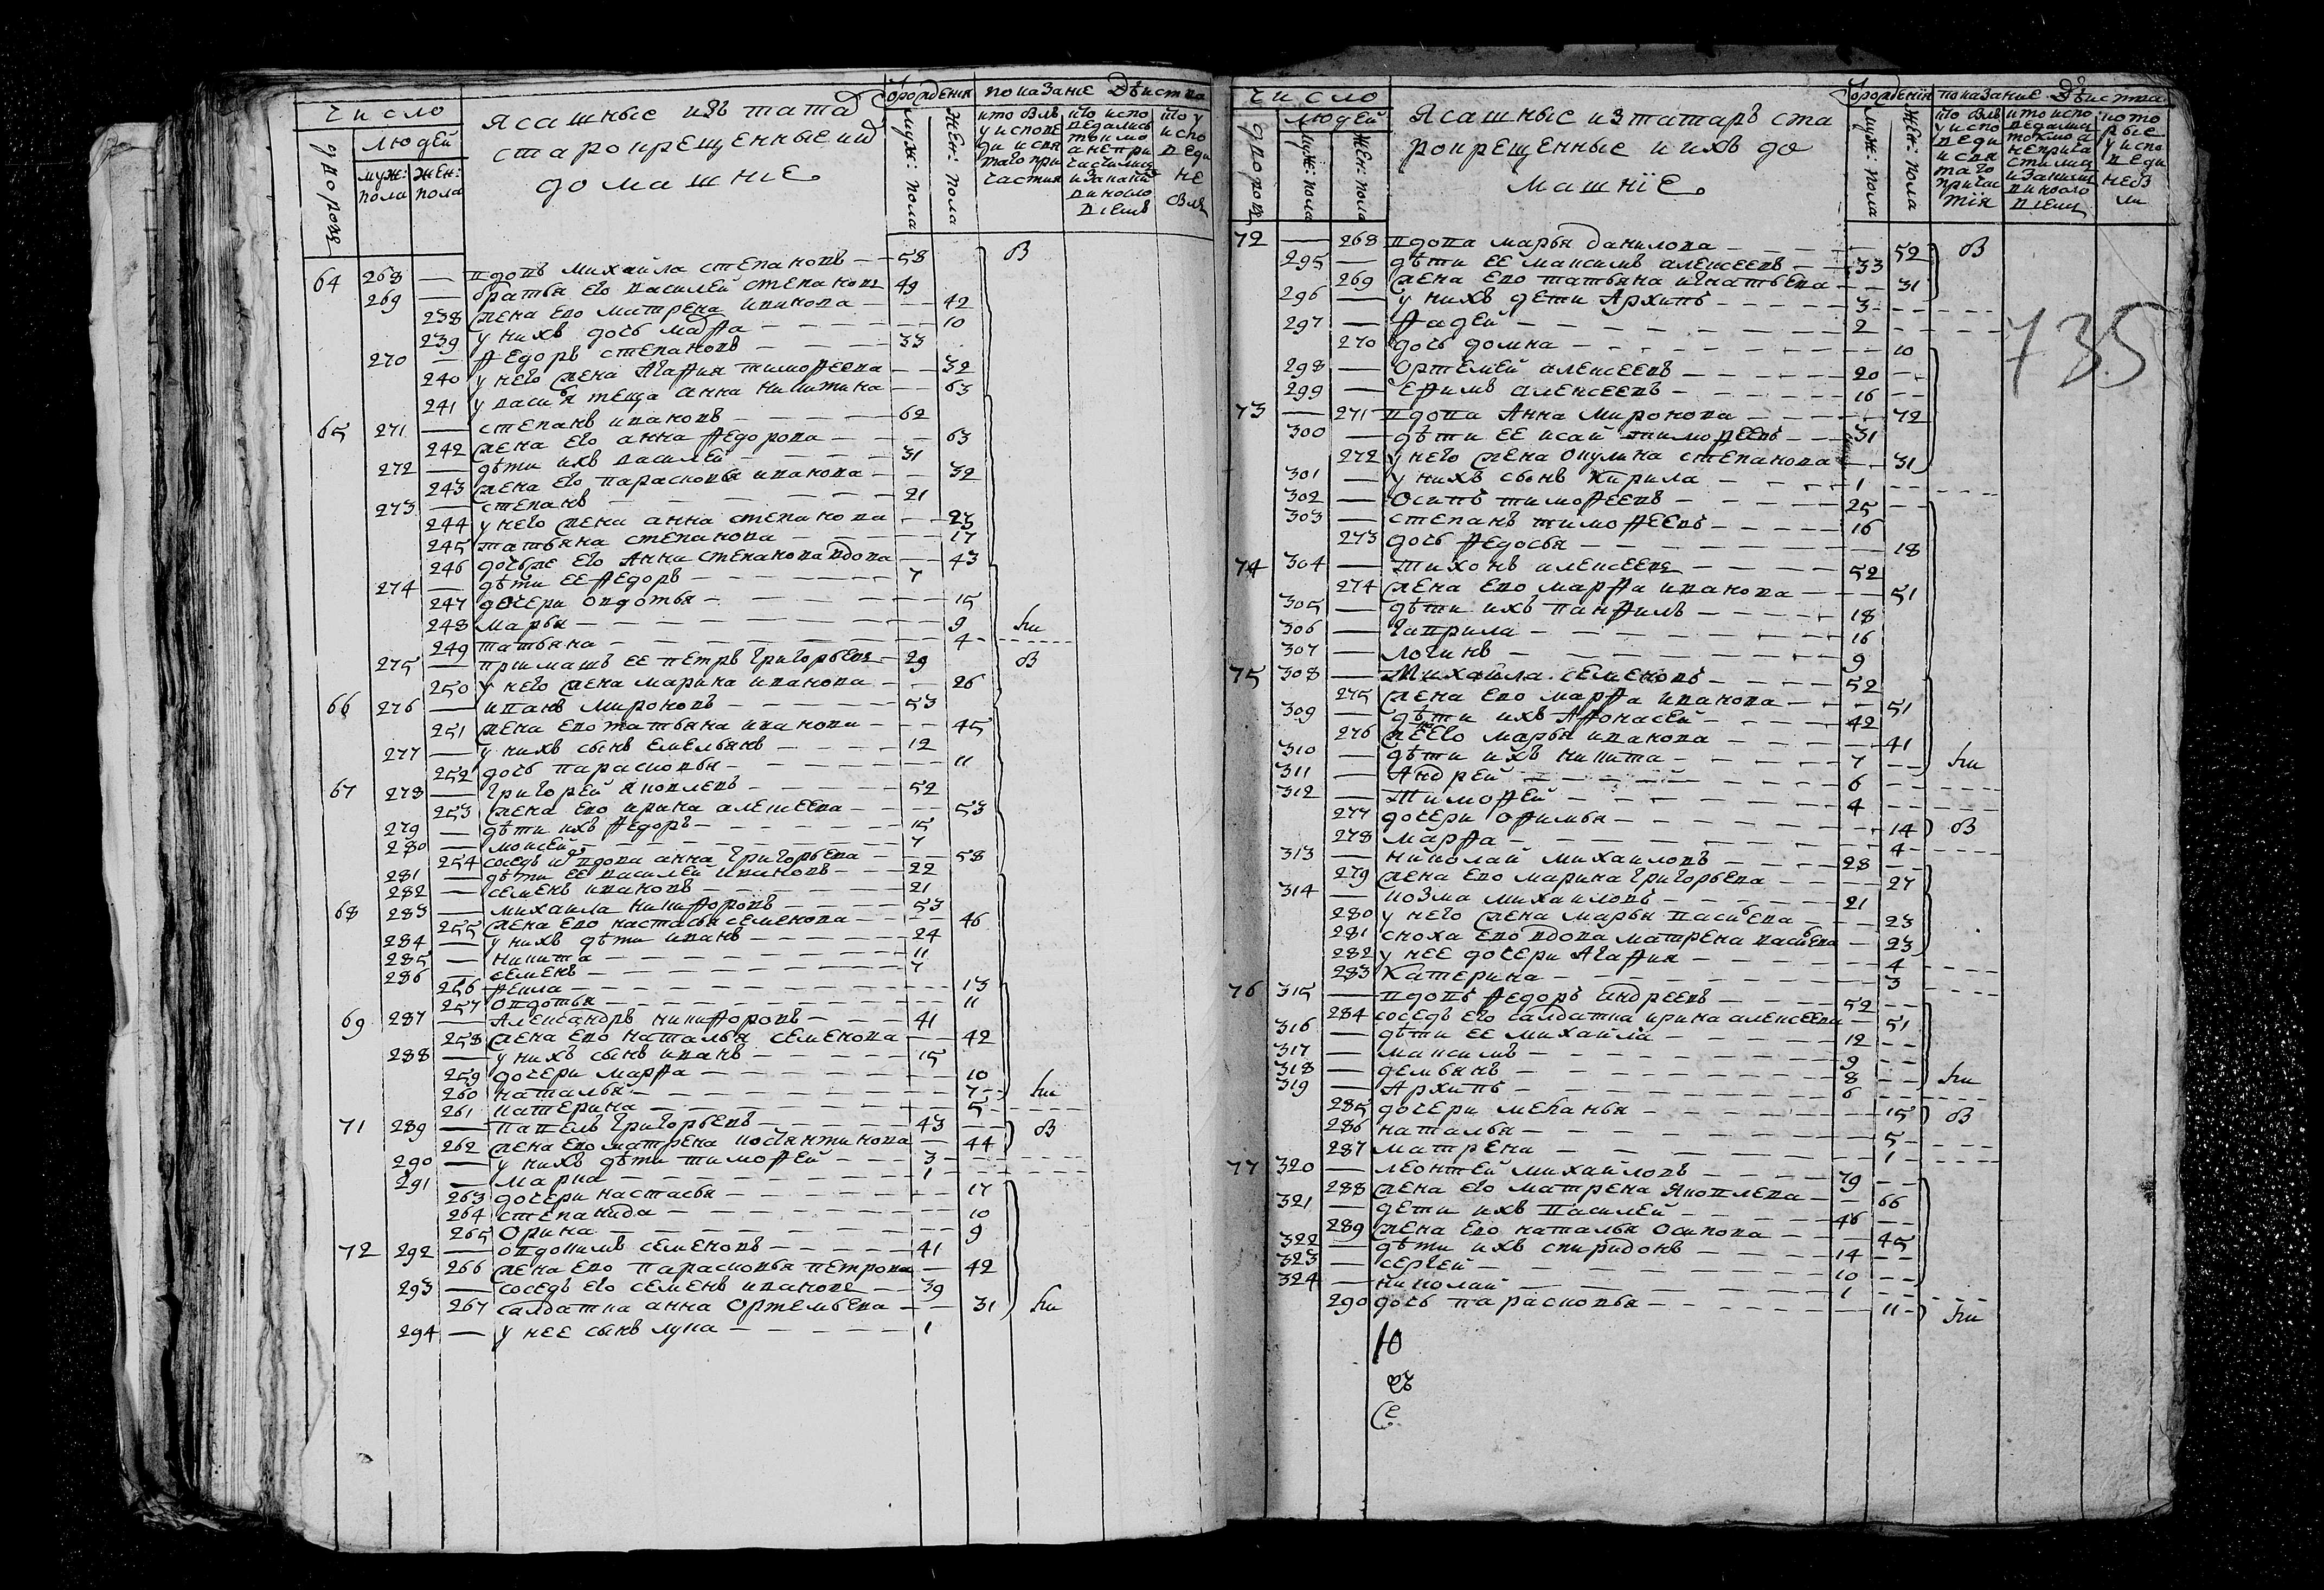 число
людей
дворовъ
муж: пола
жен: пола
ясашные изъ татаръ
старокрещенные и ихъ
домашніе
от рожденія
муж: пола
жен: пола
показание действа
кто былъ у исповеди и святаго причастия
кто исповедались токмо а не причастились и за какимъ виномъ
кто у исповеди не былъ
64 268 — вдовъ михайла степановъ — 58 б
269 — братья его василей степановъ 49
238 жена ево матрена иванова — 42
239 у нихъ дочь марфа — 10
270 — федоръ степановъ — 33
240 у него жена Агафия тимофеева — 32
241 у васил теща анна никитина — 63
65 271 — степанъ ивановъ — 62
242 жена его анна федорова — 63
272 — дѣти ихъ василей — 31
243 жена его парасковья иванова — 32
273 — степанъ — 21
244 у него жена анна степанова — 23
245 татьяна степанова — 17
246 дочь же его Анна степанова вдова — 43
274 — дѣти ее федоръ — 7
247 дочери овдотья — 15
248 марья — 9
249 татьяна — 4
275 — примашъ ее петръ григорьевъ — 29 б
250 у него жена марина иванова — 26
66 276 — иванъ мироновъ — 53
251 жена ево татьяна иванова — 45
277 — у нихъ сынъ емельянъ — 12
252 дочь парасковья — 11
67 278 — григорей яковлевъ — 52
253 жена ево ирина алексеева — 53
279 — дѣти ихъ федоръ — 15
280 — моисей — 7
254 соседъ вдова анна григорьева — 58
281 — дѣти ее василей ивановъ — 22
282 — семенъ ивановъ — 21
68 283 — михаила никифоровъ — 53
255 жена ево настасья семенова — 46
284 — у нихъ дѣти иванъ — 24
285 — никита — 11
286 — семенъ — 7
256 фекла — 13
257 овдотья — 11
69 287 — Александръ никифоровъ — 41
258 жена ево наталья семенова — 42
288 — у нихъ сынъ иванъ — 15
259 дочери марфа — 10
260 наталья — 7
261 катерина — 5
71 289 — павелъ григорьевъ — 43 б
262 жена ево матрена костянтинова — 44
290 — у нихъ дѣти тимофей — 3
291 — марка — 1
263 дочери настасья — 17
264 степанида — 10
265 Орина — 9
72 292 — овдокимъ семеновъ — 41
266 жена ево парасковья петрова — 42
293 — соседъ его семенъ ивановъ — 39
267 салдатка анна Ортемьева — 31
294 — у нее сынъ лука — 1
число
людей
дворовъ
муж: пола
жен: пола
Ясашные из татаръ ста
рокрещенные и ихъ до
машніе
от рожденія
муж: пола
жен: пола
показание действа
кто былъ у исповеди и святаго причастія
кто исповедались токмо а не причастились и за какимъ виномъ
которые у исповеди не были
735
72 — 268 вдова марья данилова — 52 б
295 — дѣти ее максимъ алексеевъ — 33
269 жена ево татьяна игнатьева — 31
296 — у нихъ дети Архипъ — 3
297 — фадей — 2
270 дочь домна — 10
298 — Ортемей алексеевъ — 20
299 — Ефимъ алексеевъ — 16
73 — 271 вдова Анна Миронова — 72
300 — дѣти ее исай тимофеевъ — 31
272 у него жена окулина степанова — 31
301 — у нихъ сынъ Кирила — 1
302 — Осипъ тимофеевъ — 25
303 — степанъ тимофеевъ — 16
273 дочь федосья — 18
74 304 — тихонъ алексеевъ — 52
274 жена ево марфа иванова — 51
305 — дѣти ихъ панфилъ — 18
306 — гаврила — 16
307 — логинъ — 9
75 308 — Михайла семеновъ — 52
275 жена ево марфа иванова — 51
309 — дѣти ихъ Афонасей — 42
276 жена его марья иванова — 41
310 — дѣти ихъ никита — 7
311 — Андрей — 6
312 — Тимофей — 4
277 дочери офимья — 14 б
278 марфа — 4
313 — николай михаиловъ — 28
279 жена ево марина григорьева — 27
314 — козма михаиловъ — 21
280 у него жена марья васильева — 23
281 сноха ево вдова матрена васильева — 23
282 у нее дочери Агафия — 4
283 Катерина — 3
76 315 — вдовъ федоръ андреевъ — 52
284 соседъ его салдатка ирина алексеева — 51
316 — дѣти ее михайла — 12
317 — максимъ — 9
318 — демьянъ — 8
319 — Архипъ — 6
285 дочери меланья — 15 б
286 наталья — 5
287 матрена — 1
77 320 — леонтей михайловъ — 79
288 жена его матрена яковлева — 66
321 — дети ихъ василей — 46
289 жена ево наталья Осипова — 45
322 — дѣти ихъ спиридонъ — 14
323 — сергей — 10
324 — николай — 1
290 дочь парасковья — 11